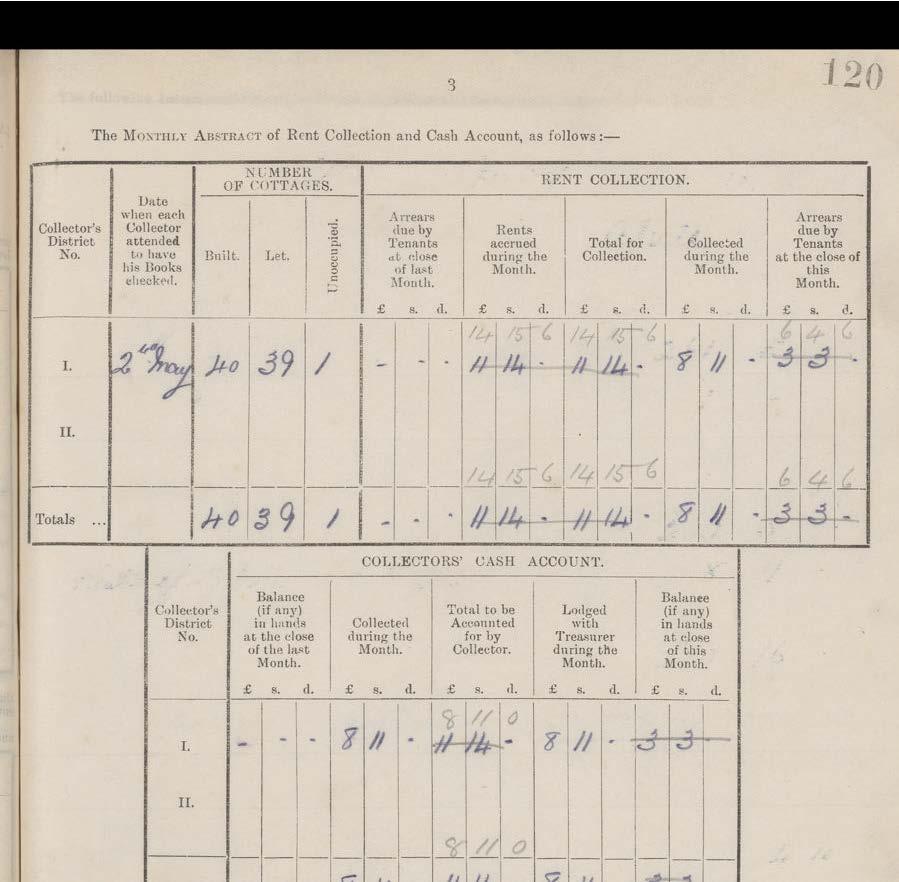 120
3
The MONTHLY ABSTRACT of Rent Collection and Cash Account, as follows:—
Collector's District No.
Date when each Collector attended to have his Books checked.
NUMBER OF COTTAGES.
Built. Let. Unoccupied.
RENT COLLECTION.
Arrears due by Tenants at close of last Month.
Rents accrued during the Month.
Total for Collection.
Collected during the Month.
Arrears due by Tenants at the close of this Month.
£ s. d. £ s. d. £ s. d. £ s. d. £ s. d.
14 15 6 14 15 6 6 4 6
I. 2nd May 40 39 1 - - - 11 14 - 11 14 - 8 11 - 3 3 -
II.
14 15 6 14 15 6 6 4 6
Totals ... 40 39 1 - - - 11 14 - 11 14 - 8 11 - 3 3 -
COLLECTORS' CASH ACCOUNT.
Collector's District No.
Balance (if any) in hands at the close of the last Month.
Collected during the Month.
Total to be Accounted for by Collector.
Lodged with Treasurer during the Month.
Balance (if any) in hands at close of this Month.
£ s. d. £ s. d. £ s. d. £ s. d. £ s. d.
8 11 0
I. - - - 8 11 - 11 14 - 8 11 - 3 3 -
II.
8 11 0